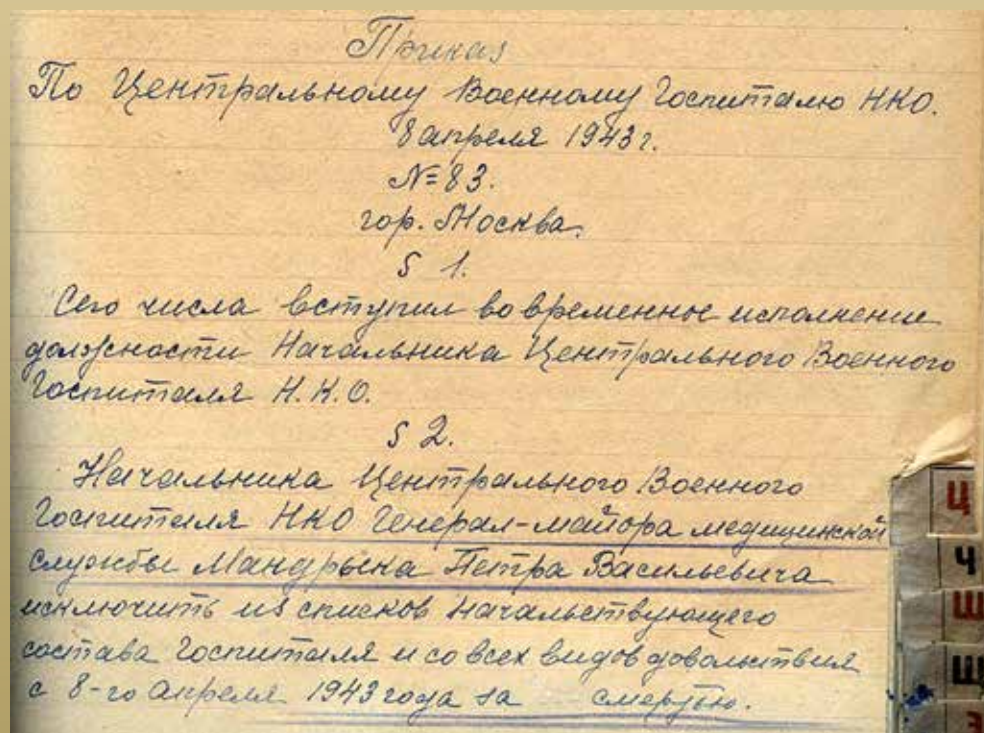 Приказ
По Центральному Военному Госпиталю НКО.
8 апреля 1943 г.
№ 83.
гор. Москва.
§ 1.
Сего числа вступил во временное исполнение
должности Начальника Центрального Военного
Госпиталя Н.К.О.
§ 2.
Начальника Центрального Военного
Госпиталя НКО Генерал-майора медицинской
службы Мандрыка Петра Васильевича
исключить из списков начальствующего
состава Госпиталя и со всех видов довольствия
с 8-го Апреля 1943 года за смертью.
Ц
Ч
Ш
Щ
Э